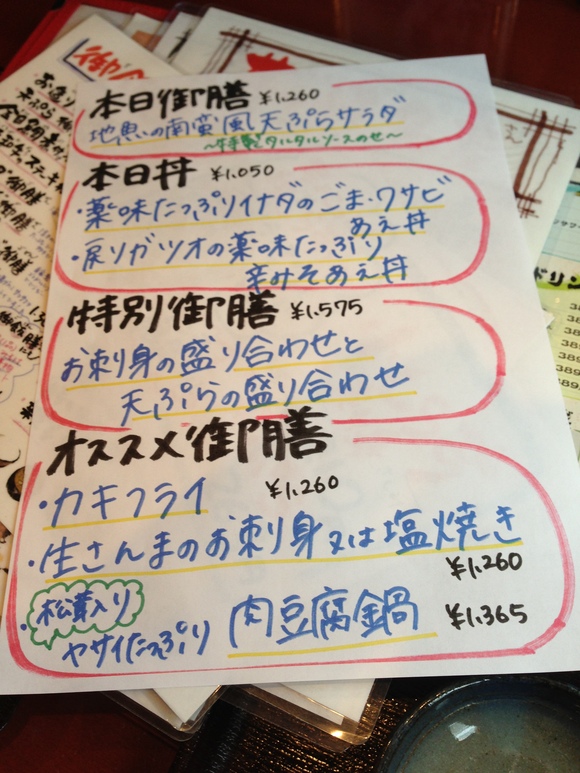 本日御膳 ¥1.260
地魚の南蛮風天ぷらサラダ
～特製タルタルソースのせ～
本日丼 ¥1.050
・薬味たっぷりイナダのごま・ワサビ
あえ丼
・戻りガツオの薬味たっぷり
辛みそあえ丼
特別御膳 ¥1.575
お刺り身の盛り合わせと
天ぷらの盛り合わせ
オススメ御膳
・カキフライ ¥1.260
・生さんまのお刺り身又は塩焼き
¥1.260
・松茸入り
ヤサイたっぷり 肉豆腐鍋 ¥1.365
ドリン
389
389
389